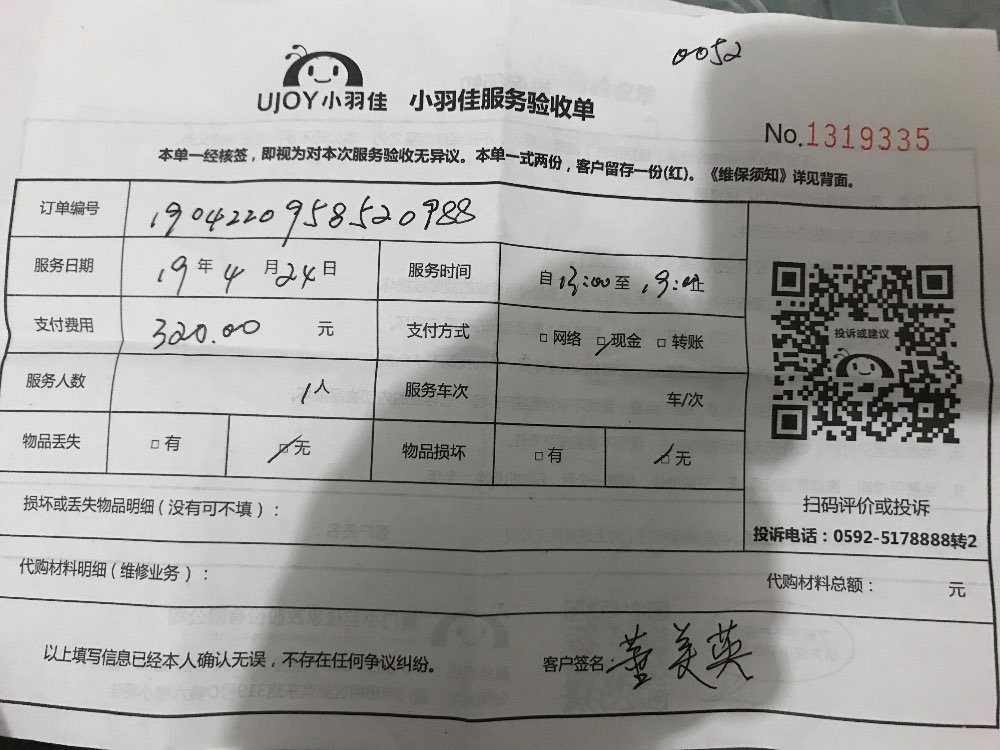 0052
UJOY小羽佳 小羽佳服务验收单
No.1319335
本单一经核签，即视为对本次服务验收无异议。本单一式两份，客户留存一份(红)。《维保须知》详见背面。
订单编号 190422095852098​8
服务日期 19年4月24日 服务时间 自13:00至19:00止
支付费用 320.00 元 支付方式 □网络 □现金 □转账
服务人数 1人 服务车次 车/次
物品丢失 □有 □无 物品损坏 □有 □无
投诉或建议
扫码评价或投诉
投诉电话：0592-5178888转2
损坏或丢失物品明细（没有可不填）：
代购材料明细（维修业务）： 代购材料总额： 元
以上填写信息已经本人确认无误，不存在任何争议纠纷。 客户签名：董美英